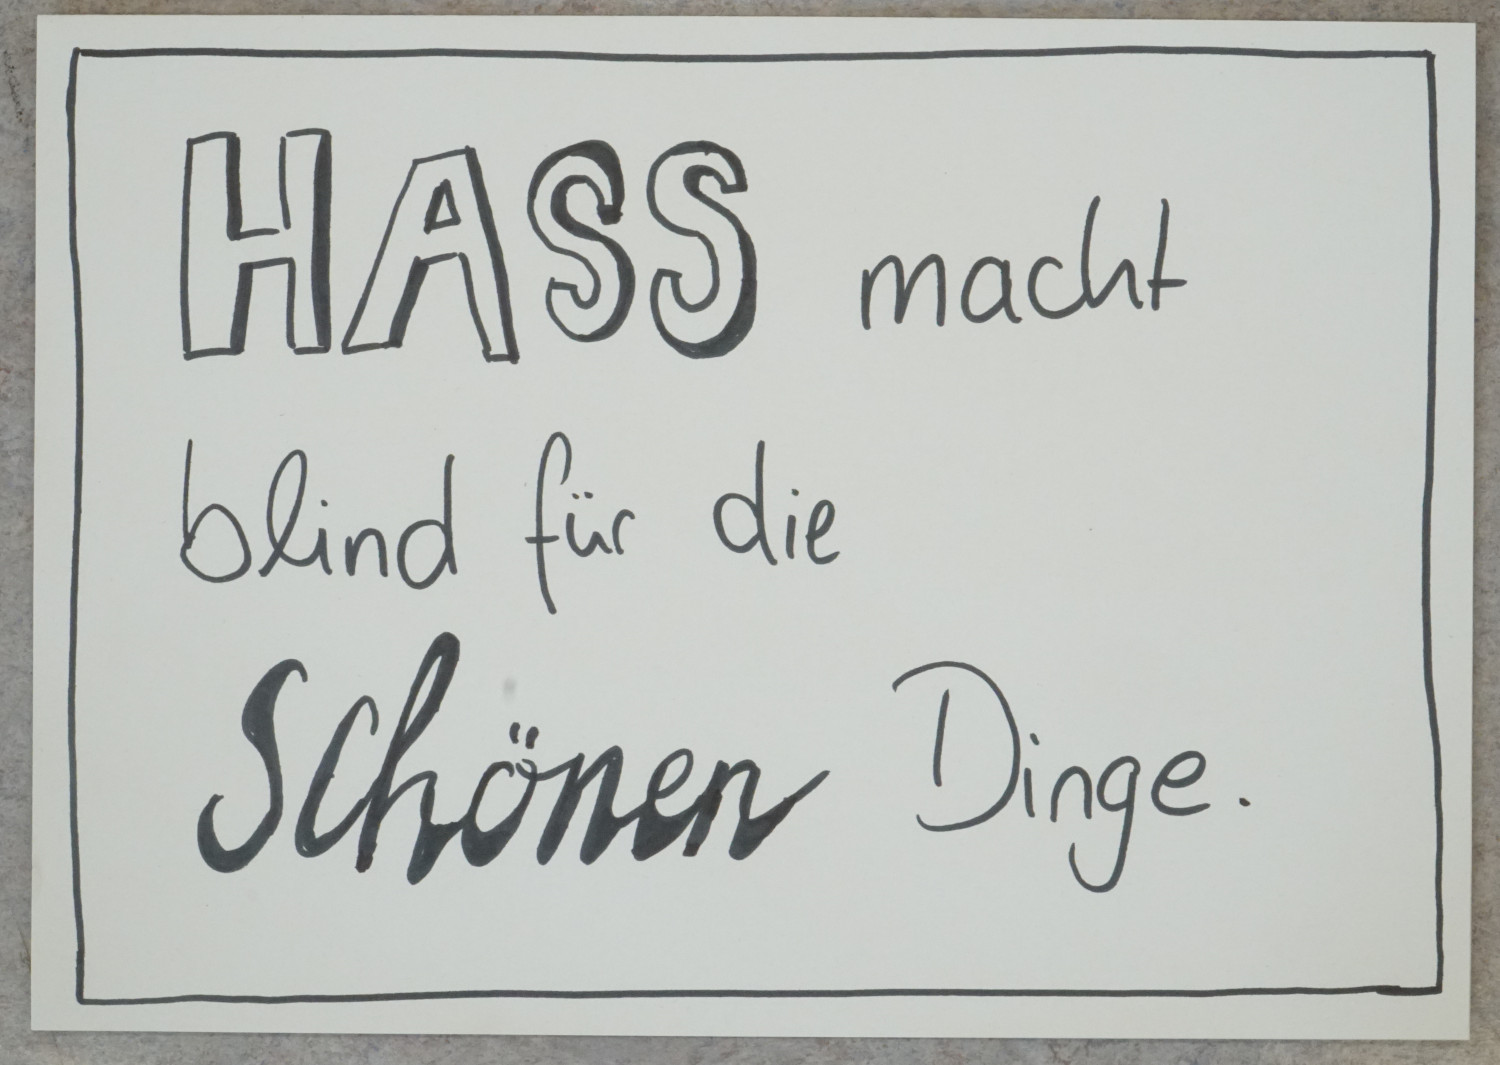 HASS macht
blind für die
Schönen Dinge.